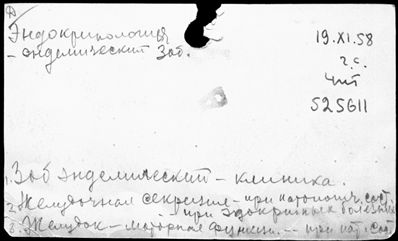 Эндокринология
- эндемический зоб.
19.XI.58
г.с.
чит
525611
1. Зоб эндемический - клиника.
2. Желудочная секреция - при патологич. сост.
при эндокринных болезнях
3. Желудок - моторная функц. -- при пат. сост.